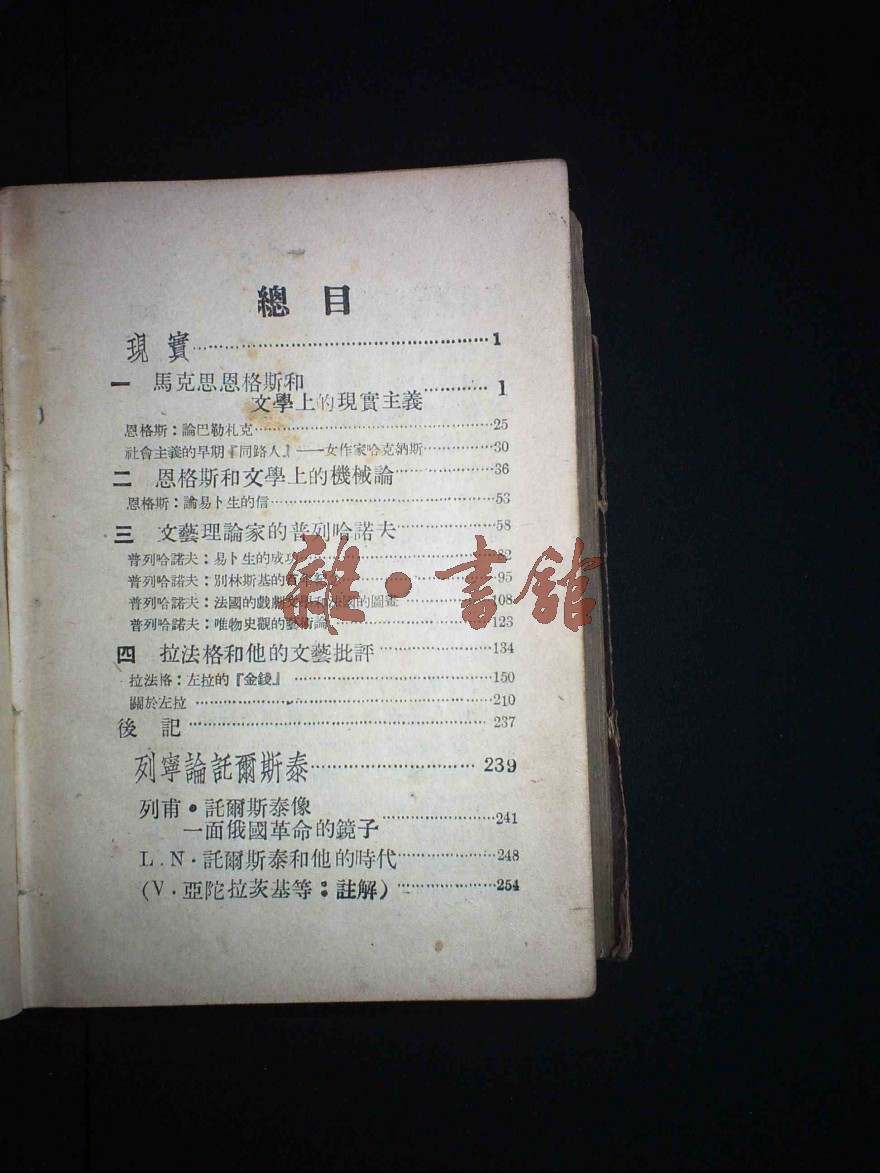 總目
現實……1
一 馬克思恩格斯和
文學上的現實主義……1
恩格斯：論巴勒札克……25
社會主義的早期『同路人』——女作家哈克納斯……30
二 恩格斯和文學上的機械論……36
恩格斯：論易卜生的信……53
三 文藝理論家的普列哈諾夫……58
普列哈諾夫：易卜生的成功……82
普列哈諾夫：別林斯基的百年紀念……95
普列哈諾夫：法國的戲劇文學和法國的圖畫……108
普列哈諾夫：唯物史觀的藝術論……123
四 拉法格和他的文藝批評……134
拉法格：左拉的『金錢』……150
關於左拉……210
後記……237
列寧論託爾斯泰……239
列甫·託爾斯泰像
一面俄國革命的鏡子……241
L.N·託爾斯泰和他的時代……248
(V·亞陀拉茨基等：註解)……254
雜·書館